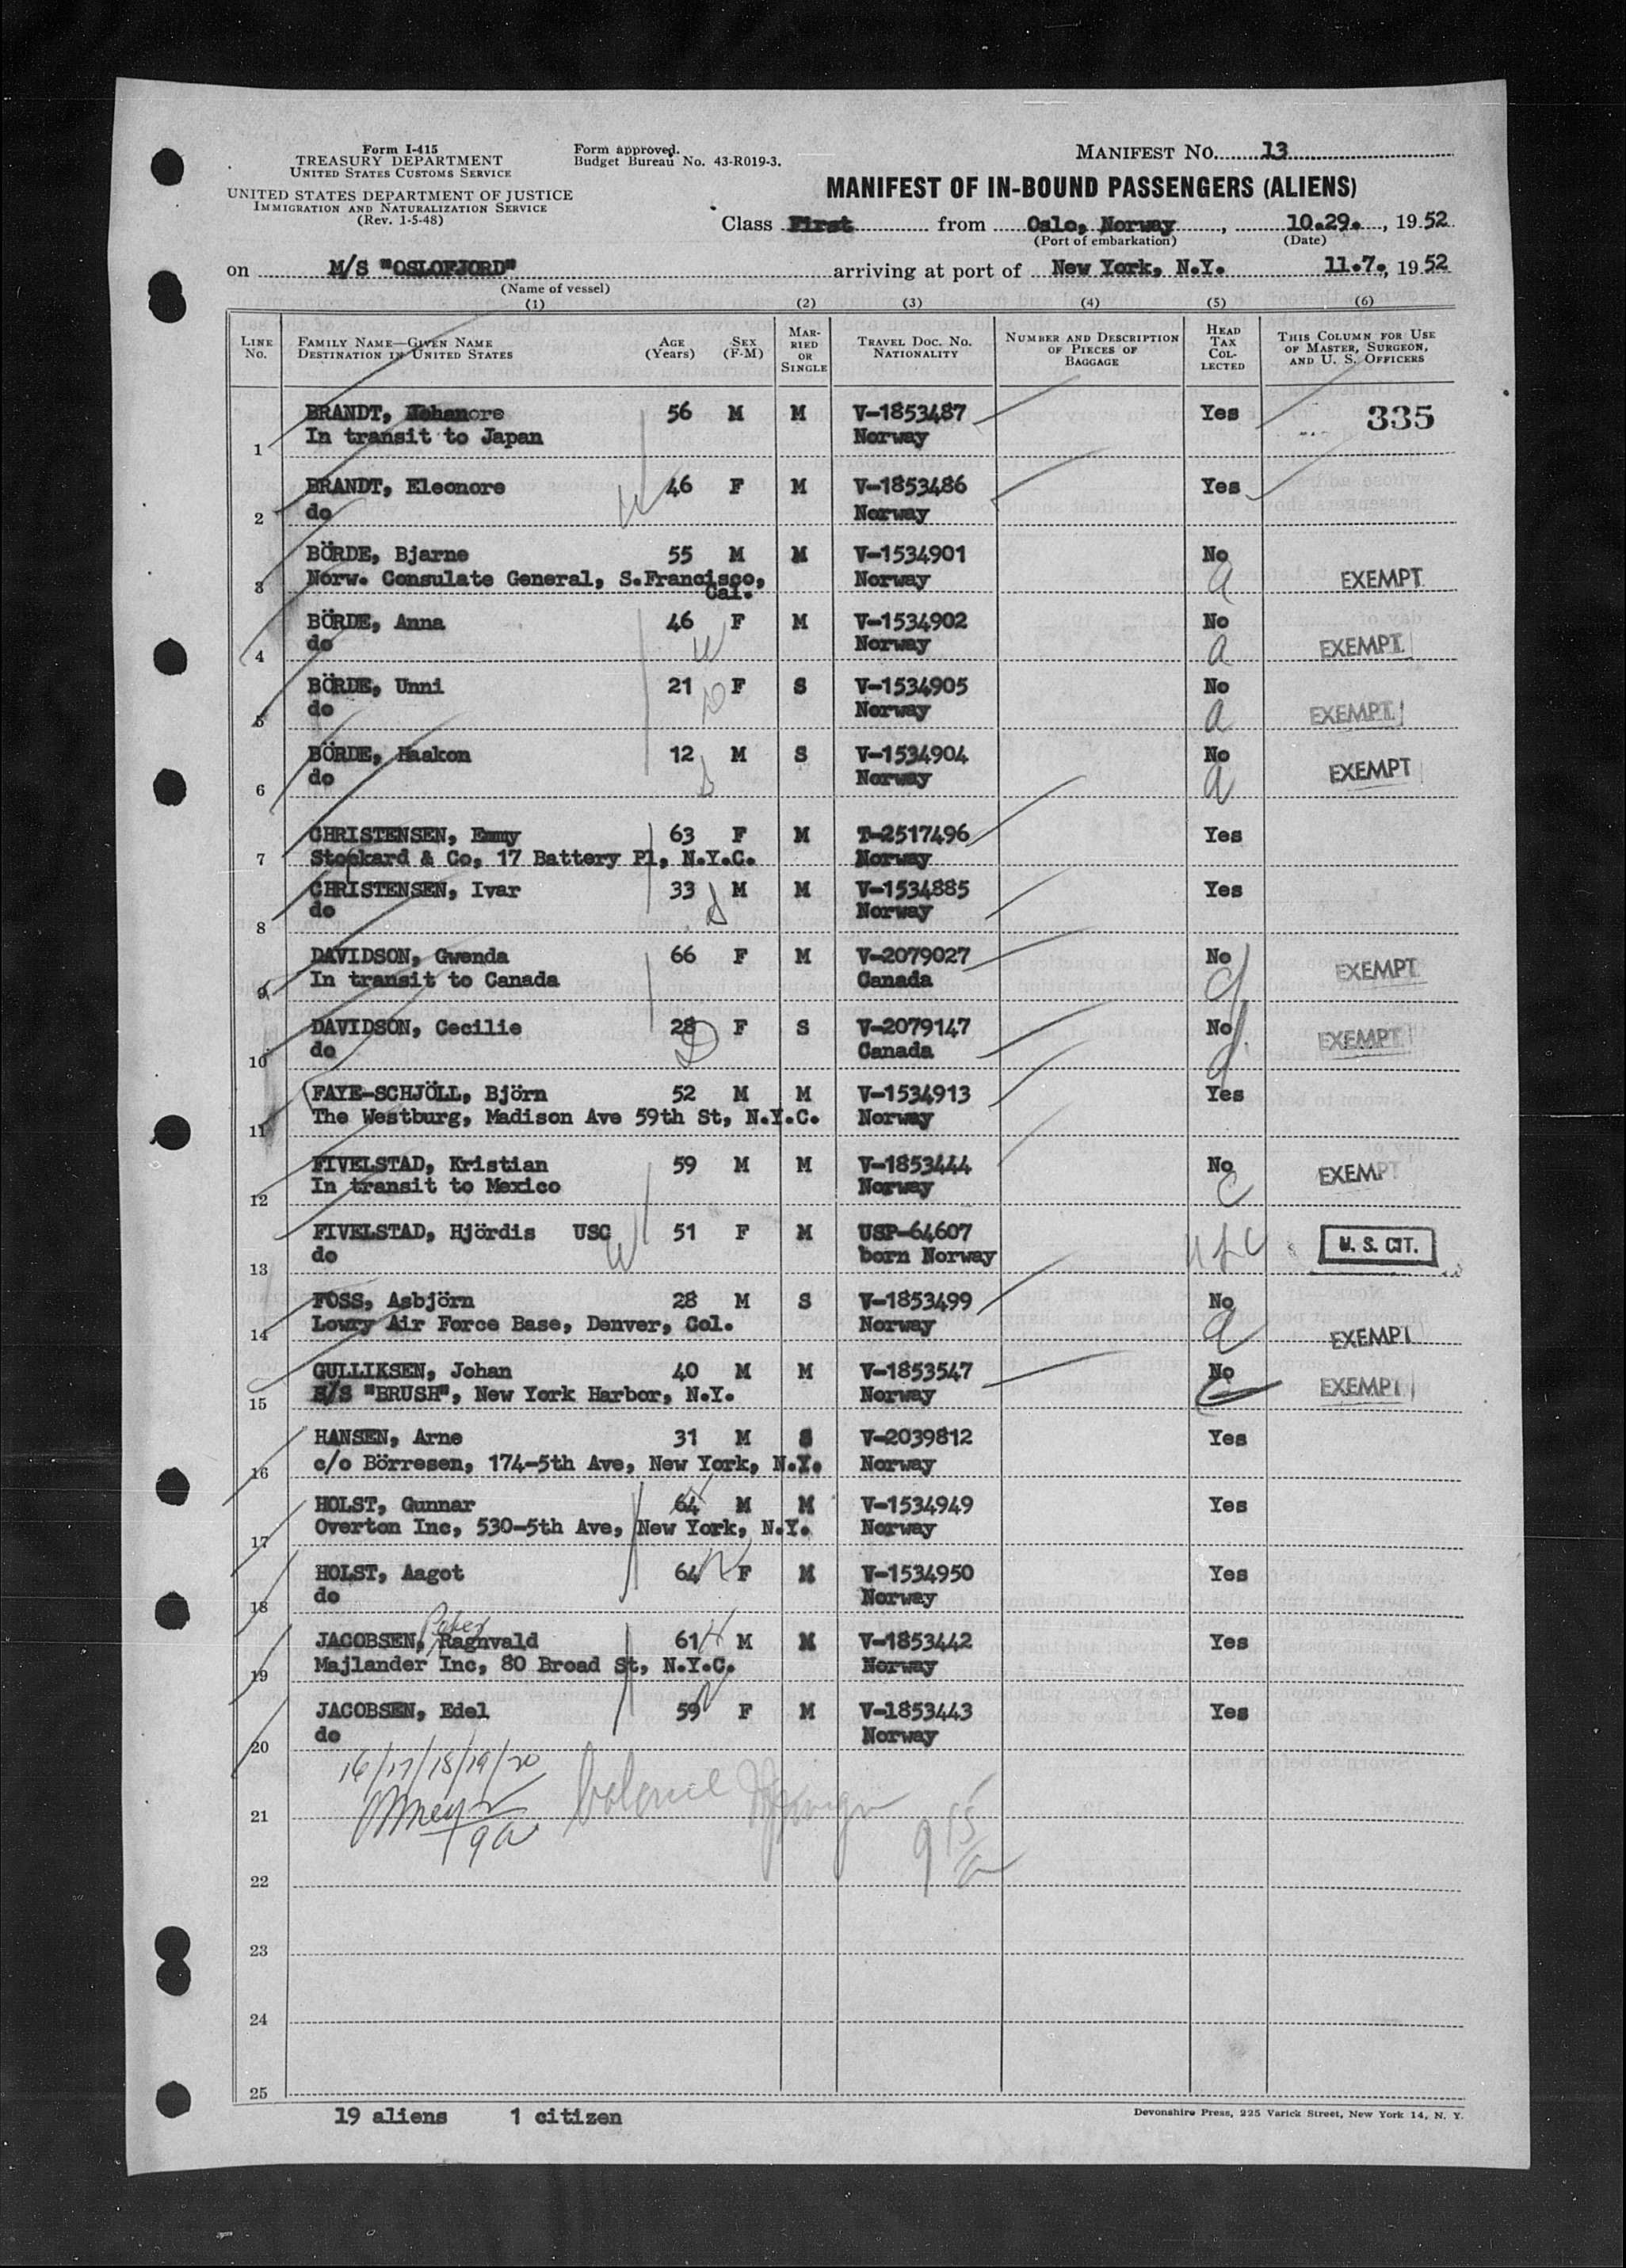 Form I-415
TREASURY DEPARTMENT
UNITED STATES CUSTOMS SERVICE
UNITED STATES DEPARTMENT OF JUSTICE
IMMIGRATION AND NATURALIZATION SERVICE
(Rev. 1-5-48)
Form approved.
Budget Bureau No. 43-R019-3.
MANIFEST NO. 13
MANIFEST OF IN-BOUND PASSENGERS (ALIENS)
Class First from Oslo, Norway, 10.29., 1952
(Port of embarkation) (Date)
on M/S "OSLOFJORD" arriving at port of New York, N.Y. 11.7., 1952
(Name of vessel)
(1) (2) (3) (4) (5) (6)
LINE NO. FAMILY NAME—GIVEN NAME DESTINATION IN UNITED STATES AGE (YEARS) SEX (F-M) MARRIED OR SINGLE TRAVEL DOC. NO. NATIONALITY NUMBER AND DESCRIPTION OF PIECES OF BAGGAGE HEAD TAX COLLECTED THIS COLUMN FOR USE OF MASTER, SURGEON, AND U. S. OFFICERS
BRANDT, 56 M M V-1853487 Yes 335
1 In transit to Japan Norway
BRANDT, Eleonore 46 F M V-1853486 Yes
W
2 do Norway
BÖRDE, Bjarne 55 M M V-1534901 No
3 Norw. Consulate General, S.Francisco, Norway a EXEMPT
Cal.
BÖRDE, Anna 46 F M V-1534902 No
4 do W Norway a EXEMPT
BÖRDE, Unni 21 F S V-1534905 No
5 do D Norway a EXEMPT
BÖRDE, Haakon 12 M S V-1534904 No
6 do Norway a EXEMPT
CHRISTENSEN, Emmy 63 F M T-2517496 Yes
7 Stockard & Co, 17 Battery Pl, N.Y.C. Norway
CHRISTENSEN, Ivar 33 M M V-1534885 Yes
8 do Norway
DAVIDSON, Gwenda 66 F M V-2079027 No EXEMPT
9 In transit to Canada Canada
DAVIDSON, Cecilie 28 F S V-2079147 No EXEMPT
10 do D Canada
FAYE-SCHJÖLL, Björn 52 M M V-1534913 Yes
11 The Westburg, Madison Ave 59th St, N.Y.C. Norway
FIVELSTAD, Kristian 59 M M V-1853444 No EXEMPT
12 In transit to Mexico Norway C
FIVELSTAD, Hjördis USC 51 F M USP-64607 U.S. CIT.
13 do W born Norway
FOSS, Asbjörn 28 M S V-1853499 No
14 Lowry Air Force Base, Denver, Col. Norway a EXEMPT
GULLIKSEN, Johan 40 M M V-1853547 No
15 S/S "BRUSH", New York Harbor, N.Y. Norway EXEMPT
HANSEN, Arne 31 M S V-2039812 Yes
16 c/o Börresen, 174-5th Ave, New York, N.Y. Norway
HOLST, Gunnar 64 M M V-1534949 Yes
17 Overton Inc, 530-5th Ave, New York, N.Y. Norway
HOLST, Aagot 64 F M V-1534950 Yes
18 do Norway
Peter
JACOBSEN, Ragnvald 61 H M M V-1853442 Yes
19 Majlander Inc, 80 Broad St, N.Y.C. Norway
JACOBSEN, Edel 59 F M V-1853443 Yes
20 do Norway
16/17/18/19/20
21
22
23
24
25
19 aliens 1 citizen
Devonshire Press, 225 Varick Street, New York 14, N. Y.